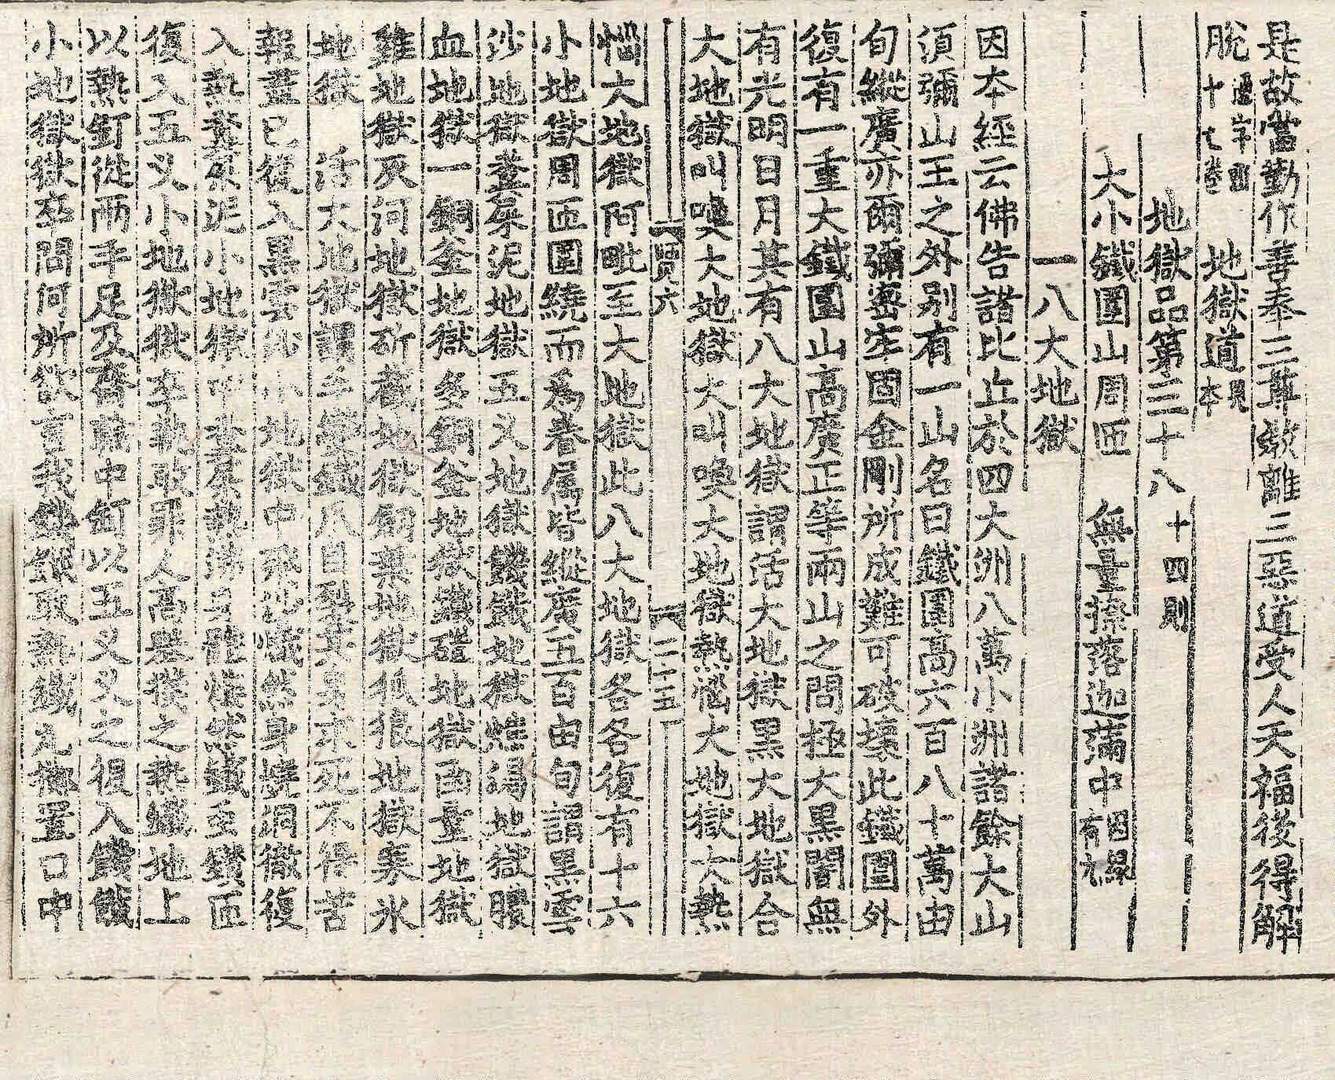 是故當勤作善奉三尊敬離三惡道受人天福後得解
脫 地獄道
地獄品第三十八 十四則
大小鐵圍山周匝 無量捺落迦滿中
一八大地獄
因本經云佛告諸比丘於四大洲八萬小洲諸餘大山
須彌山王之外別有一山名曰鐵圍高六百八十萬由
旬縱廣亦爾彌密牢固金剛所成難可破壞此鐵圍外
復有一重大鐵圍山高廣正等兩山之間極大黑闇無
有光明日月其有八大地獄謂活大地獄黑大地獄合
大地獄叫喚大地獄大叫喚大地獄熱惱大地獄大熱
賢六 二十五
惱大地獄阿毗至大地獄此八大地獄各各復有十六
小地獄周匝圍繞而為眷屬皆縱廣五百由旬謂黑雲
沙地獄糞屎泥地獄五叉地獄饑餓地獄燋渴地獄膿
血地獄一銅釜地獄多銅釜地獄鐵磑地獄函量地獄
雞地獄灰河地獄斫截地獄劒葉地獄狐狼地獄寒氷
地獄 活大地獄謂手鐵爪自裂其身求死不得苦
報盡已復入黑雲沙小地獄中飛沙熾然身燒洞徹復
入熱糞屎泥小地獄中糞屎熱沸身體燋然鐵至鑽匝
復入五叉小地獄獄卒執敗罪人高舉撲之熱鐵地上
以熱釘從兩手足及齊中釘以五叉叉之復入饑餓
小地獄獄卒問何所欲言我饑餓取熱鐵丸擲置口中